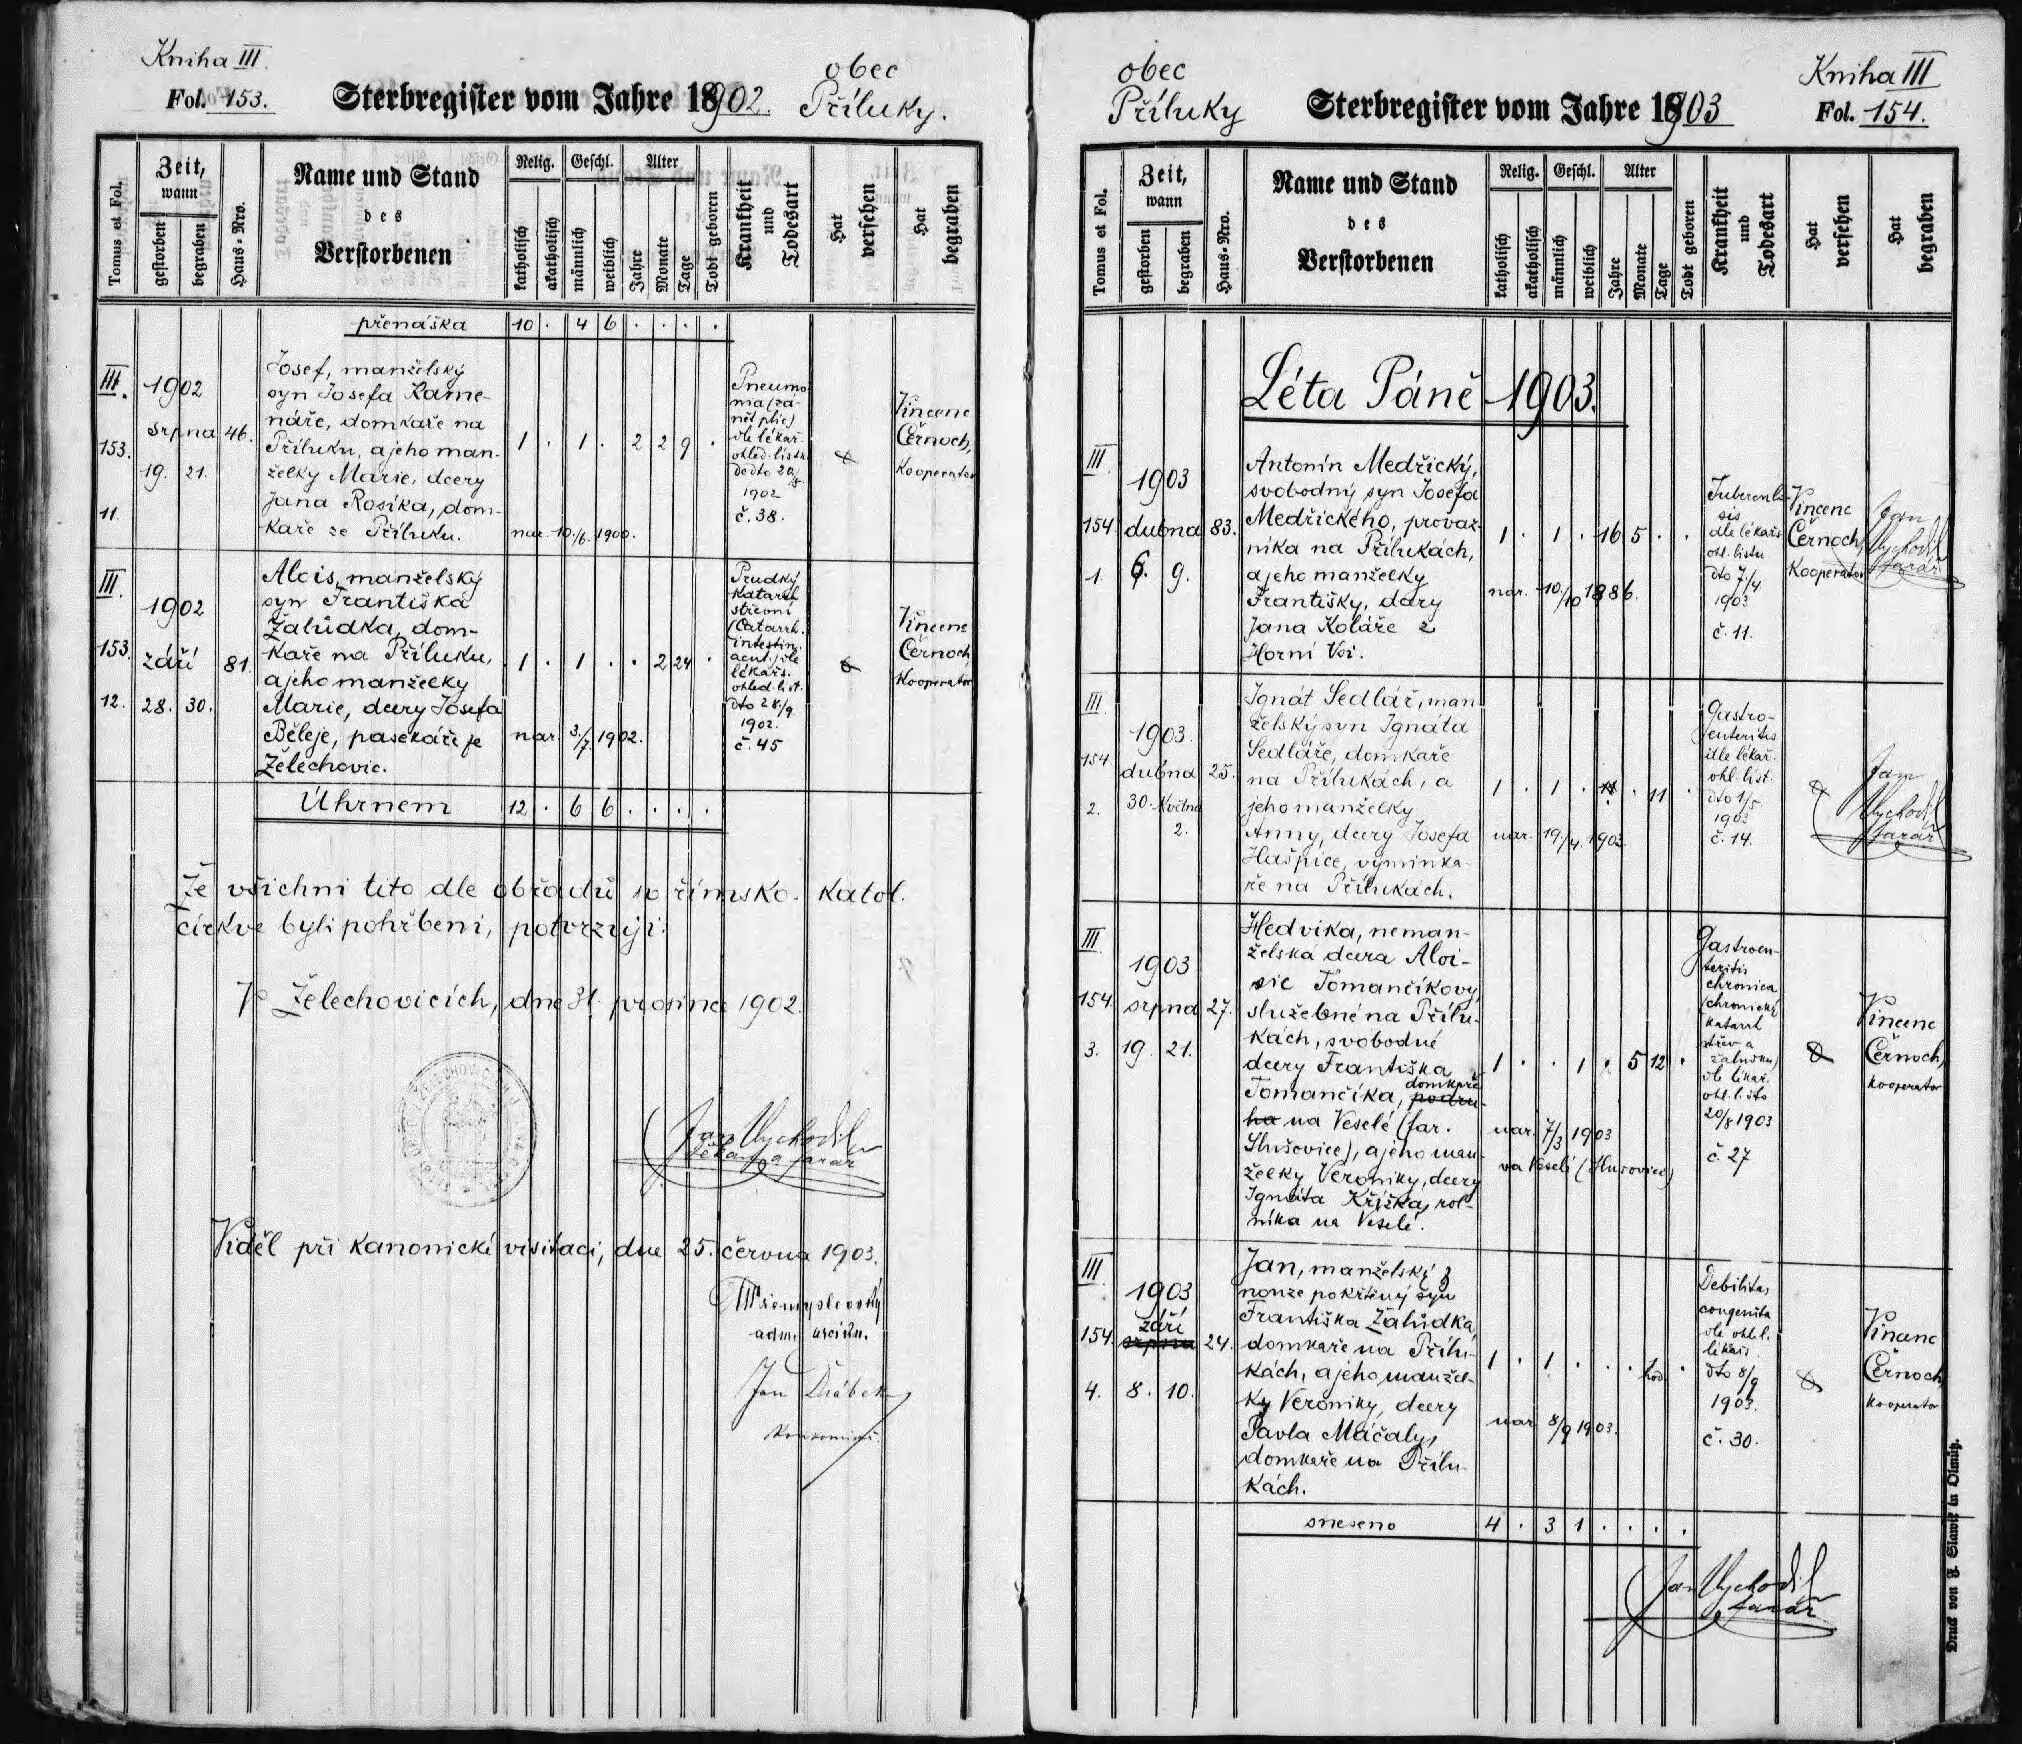 Kniha III.
Fol. 153.
Sterbregister vom Jahre 1902.
obec
Příluky.
Tomus et Fol.
Zeit,
wann
gestorben
begraben
Haus-Nro.
Name und Stand
des
Verstorbenen
Relig.
katholisch
akatholisch
Geschl.
männlich
weiblich
Alter
Jahre
Monate
Tage
Todt geboren
Krankheit
und
Todesart
Hat
versehen
Hat
begraben
přenáška 10 . 4 6 . . . .
III.
153.
11.
1902
srpna
19. 21.
46.
Josef, manželský
syn Josefa Kame-
náře, domkaře na
Příluku, a jeho man-
želky Marie, dcery
Jana Rosíka, dom-
kaře ze Příluku.
1 . 1 . 2 2 9 .
nar. 10./6. 1900.
Pneumo-
nia (zá-
nět plic)
dle lékař.
ohled. listu
dedto 20/8
1902
č. 38.
Vincenc
Černoch,
Kooperator
III.
153.
12.
1902
září
28. 30.
81.
Alois, manželský
syn Františka
Žalůdka, dom-
kaře na Příluku,
a jeho manželky
Marie, dcery Josefa
Běleje, pasekáře ze
Želechovic.
1 . 1 . . 2 24 .
nar. 3./7. 1902.
Prudký
katarrh
střevní
(Catarrh.
intestin.
acut.) dle
lékařs.
ohled. list.
dto 28/9
1902.
č. 45
Vincenc
Černoch
Kooperator
Úhrnem 12 . 6 6 . . . .
Že všichni tito dle obřadů sv. římsko. katol.
církve byli pohřbeni, potvrzuji:
V Želechovicích, dne 31. prosince 1902.
Jan Vychodil
děkan a farář
Viděl při kanonické visitaci, dne 25. června 1903.
Jan
obec
Příluky
Sterbregister vom Jahre 1903
Kniha III
Fol. 154.
Tomus et Fol.
Zeit,
wann
gestorben
begraben
Haus-Nro.
Name und Stand
des
Verstorbenen
Relig.
katholisch
akatholisch
Geschl.
männlich
weiblich
Alter
Jahre
Monate
Tage
Todt geboren
Krankheit
und
Todesart
Hat
versehen
Hat
begraben
Léta Páně 1903.
III
154
1.
1903
dubna
6. 9.
83.
Antonín Medřický,
svobodný syn Josefa
Medřického, provaz-
níka na Přílukách,
a jeho manželky
Františky, dcery
Jana Koláře z
Horní Vsi.
1 . 1 . 16 5 . .
nar. 10./10 1886.
Tuberculo-
sis
dle lékařs.
ohl. listu
dto 7./4
1903
č. 11.
Vincenc
Černoch,
Kooperator
Jan
Vychodil
farář
III
154
2.
1903.
dubna
30. května
2.
25.
Ignát Sedlář, man-
želský syn Ignáta
Sedláře, domkaře
na Přílukách, a
jeho manželky
Anny, dcery Josefa
Hušpice, výminka-
ře na Přílukách.
1 . 1 . . 11 .
nar. 19./4. 1903
Gastro-
enteritis
dle lékař.
ohl. list.
dto 1/5
1903
č. 14.
Jan
Vychodil
farář
III
154
3.
1903
srpna
19. 21.
27.
Hedvika, neman-
želská dcera Aloi-
sie Tomančíkovy,
služebné na Přílu-
kách, svobodné
dcery Františka
domkaře
Tomančíka, podru-
ha na Veselé (far.
Slušovice), a jeho man-
želky Veroniky, dcery
Ignáta Křížka, rol-
níka na Veselé.
1 . . 1 . 5 12 .
nar. 7/3 1903
na Veselé (Slušovice)
Gastroen-
teritis
chronica
(chronický
katarrh
střev a
žaludku)
dle lékař.
ohl. listo
20/8 1903
č. 27
Vincenc
Černoch,
Kooperator
III
154.
4.
1903
září
srpna
8. 10.
24.
Jan, manželský z
nouze pokřtěný syn
Františka Žalůdka,
domkaře na Přílu-
kách, a jeho manžel-
ky Veroniky, dcery
Pavla Máčaly,
domkaře na Přílu-
kách.
1 . 1 . . . hod. .
nar. 8/9 1903.
Debilitas
congenita
dle ohl. l.
lékařs.
dto 8/9
1903.
č. 30.
Vincenc
Černoch
Kooperator
sneseno 4 . 3 1 . . . .
Jan Vychodil
farář
Druck von F. Slawik in Olmütz.